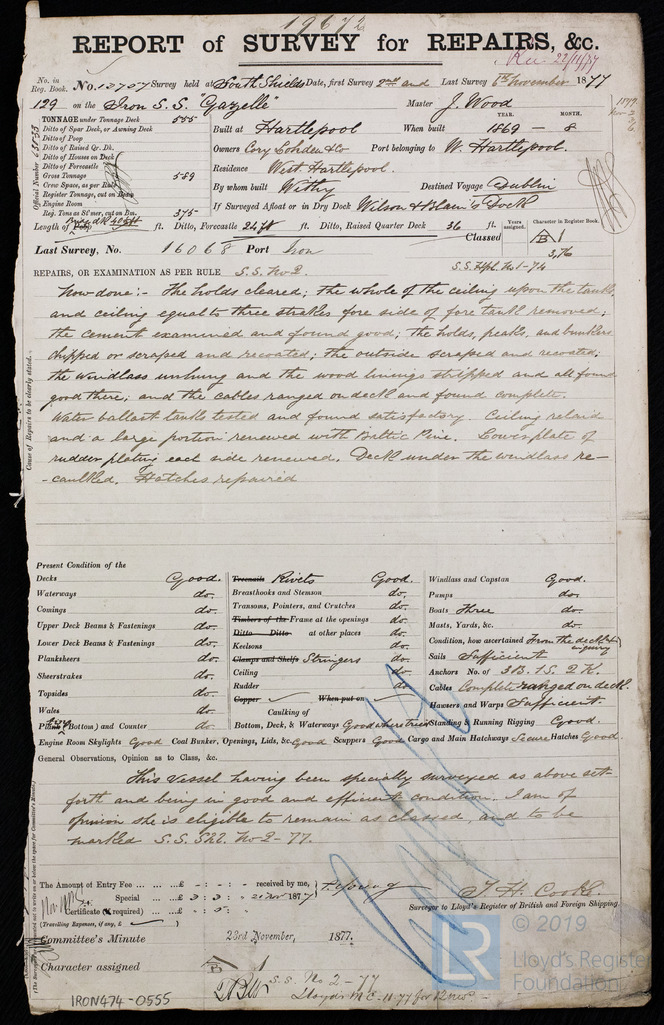 19672
REPORT of SURVEY for REPAIRS, &c.
Rec 22/11/77
No. in Reg. Book. No. 12707 Survey held at South Shields Date, first Survey 2nd and Last Survey 6th November 1877
129 on the Iron S.S. "Gazelle" Master J. Wood
TONNAGE under Tonnage Deck 555
Ditto of Spar Deck, or Awning Deck
Ditto of Poop
Ditto of Raised Qr. Dk.
Ditto of Houses on Deck
Ditto of Forecastle
Gross Tonnage 589
Crew Space, as per Rule
Register Tonnage, cut on Beam
Engine Room
Reg. Tons as Stmer, cut on Bm. 375
Official Number
YEAR. MONTH.
Built at Hartlepool When built 1869 - 8
Owners Cory Lohden & Co Port belonging to W. Hartlepool.
Residence West Hartlepool.
By whom built Withy Destined Voyage Dublin
If Surveyed Afloat or in Dry Dock Wilson & Blair's Dock
Length of ft. Ditto, Forecastle 24 ft ft. Ditto, Raised Quarter Deck 36 ft.
Years assigned. Character in Register Book.
Classed A 1
3,76
Last Survey, No. 16068 Port Iron
S.S. Hpl. No 1-74
REPAIRS, OR EXAMINATION AS PER RULE S.S. No 2.
Now done:- The holds cleared; the whole of the ceiling upon the tank,
and ceiling equal to three strakes fore side of fore tank removed;
the cement examined and found good; the holds, peaks, and bunkers
chipped or scraped and recoated; the outside scraped and recoated;
the windlass unhung and the wood linings stripped and all found
good there; and the cables ranged on deck and found complete.
Water ballast tanks tested and found satisfactory. Ceiling relaid
and a large portion renewed with Baltic Pine. Lower plate of
rudder plating each side renewed. Deck under the windlass re-
-caulked. Hatches repaired
Cause of Repairs to be clearly stated.
Present Condition of the
Decks Good.
Waterways do.
Comings do.
Upper Deck Beams & Fastenings do.
Lower Deck Beams & Fastenings do.
Planksheers do.
Sheerstrakes do.
Topsides do.
Wales do.
Plating (Bottom) and Counter do.
Treenails Rivets Good.
Breasthooks and Stemson do.
Transoms, Pointers, and Crutches do.
Timbers of the Frame at the openings do.
Ditto Ditto at other places do.
Keelsons do.
Clamps and Shelfs Stringers do.
Ceiling do.
Rudder do.
Copper When put on
Caulking of
Bottom, Deck, & Waterways Good where seen
Windlass and Capstan Good.
Pumps do.
Boats Three do.
Masts, Yards, &c. do.
Condition, how ascertained From the deck & inquiry
Sails Sufficient
Anchors No. of 3 B. 1 S. 2 K.
Cables Complete ranged on deck.
Hawsers and Warps Sufficient.
Standing & Running Rigging Good.
Engine Room Skylights Good Coal Bunker, Openings, Lids, &c Good Scuppers Good Cargo and Main Hatchways Secure Hatches Good.
General Observations, Opinion as to Class, &c.
This vessel having been specially surveyed as above set
forth and being in good and efficient condition. I am of
opinion she is eligible to remain as classed, and to be
marked S.S. Shl. No 2-77.
The Amount of Entry Fee ... ... ... £ - : - : - received by me,
Special ... ... £ 3 : 3 : - 1877
Certificate (if required) ... £ - : 5 : -
(Travelling Expenses, if any, £ )
T. H. Cooke.
Surveyor to Lloyd's Register of British and Foreign Shipping.
Committee's Minute 23rd November, 1877.
Character assigned A 1
S.S. No 2-77
Lloyd's M C 11.77
IRON474-0555
© 2019
LR
Lloyd's Register
Foundation